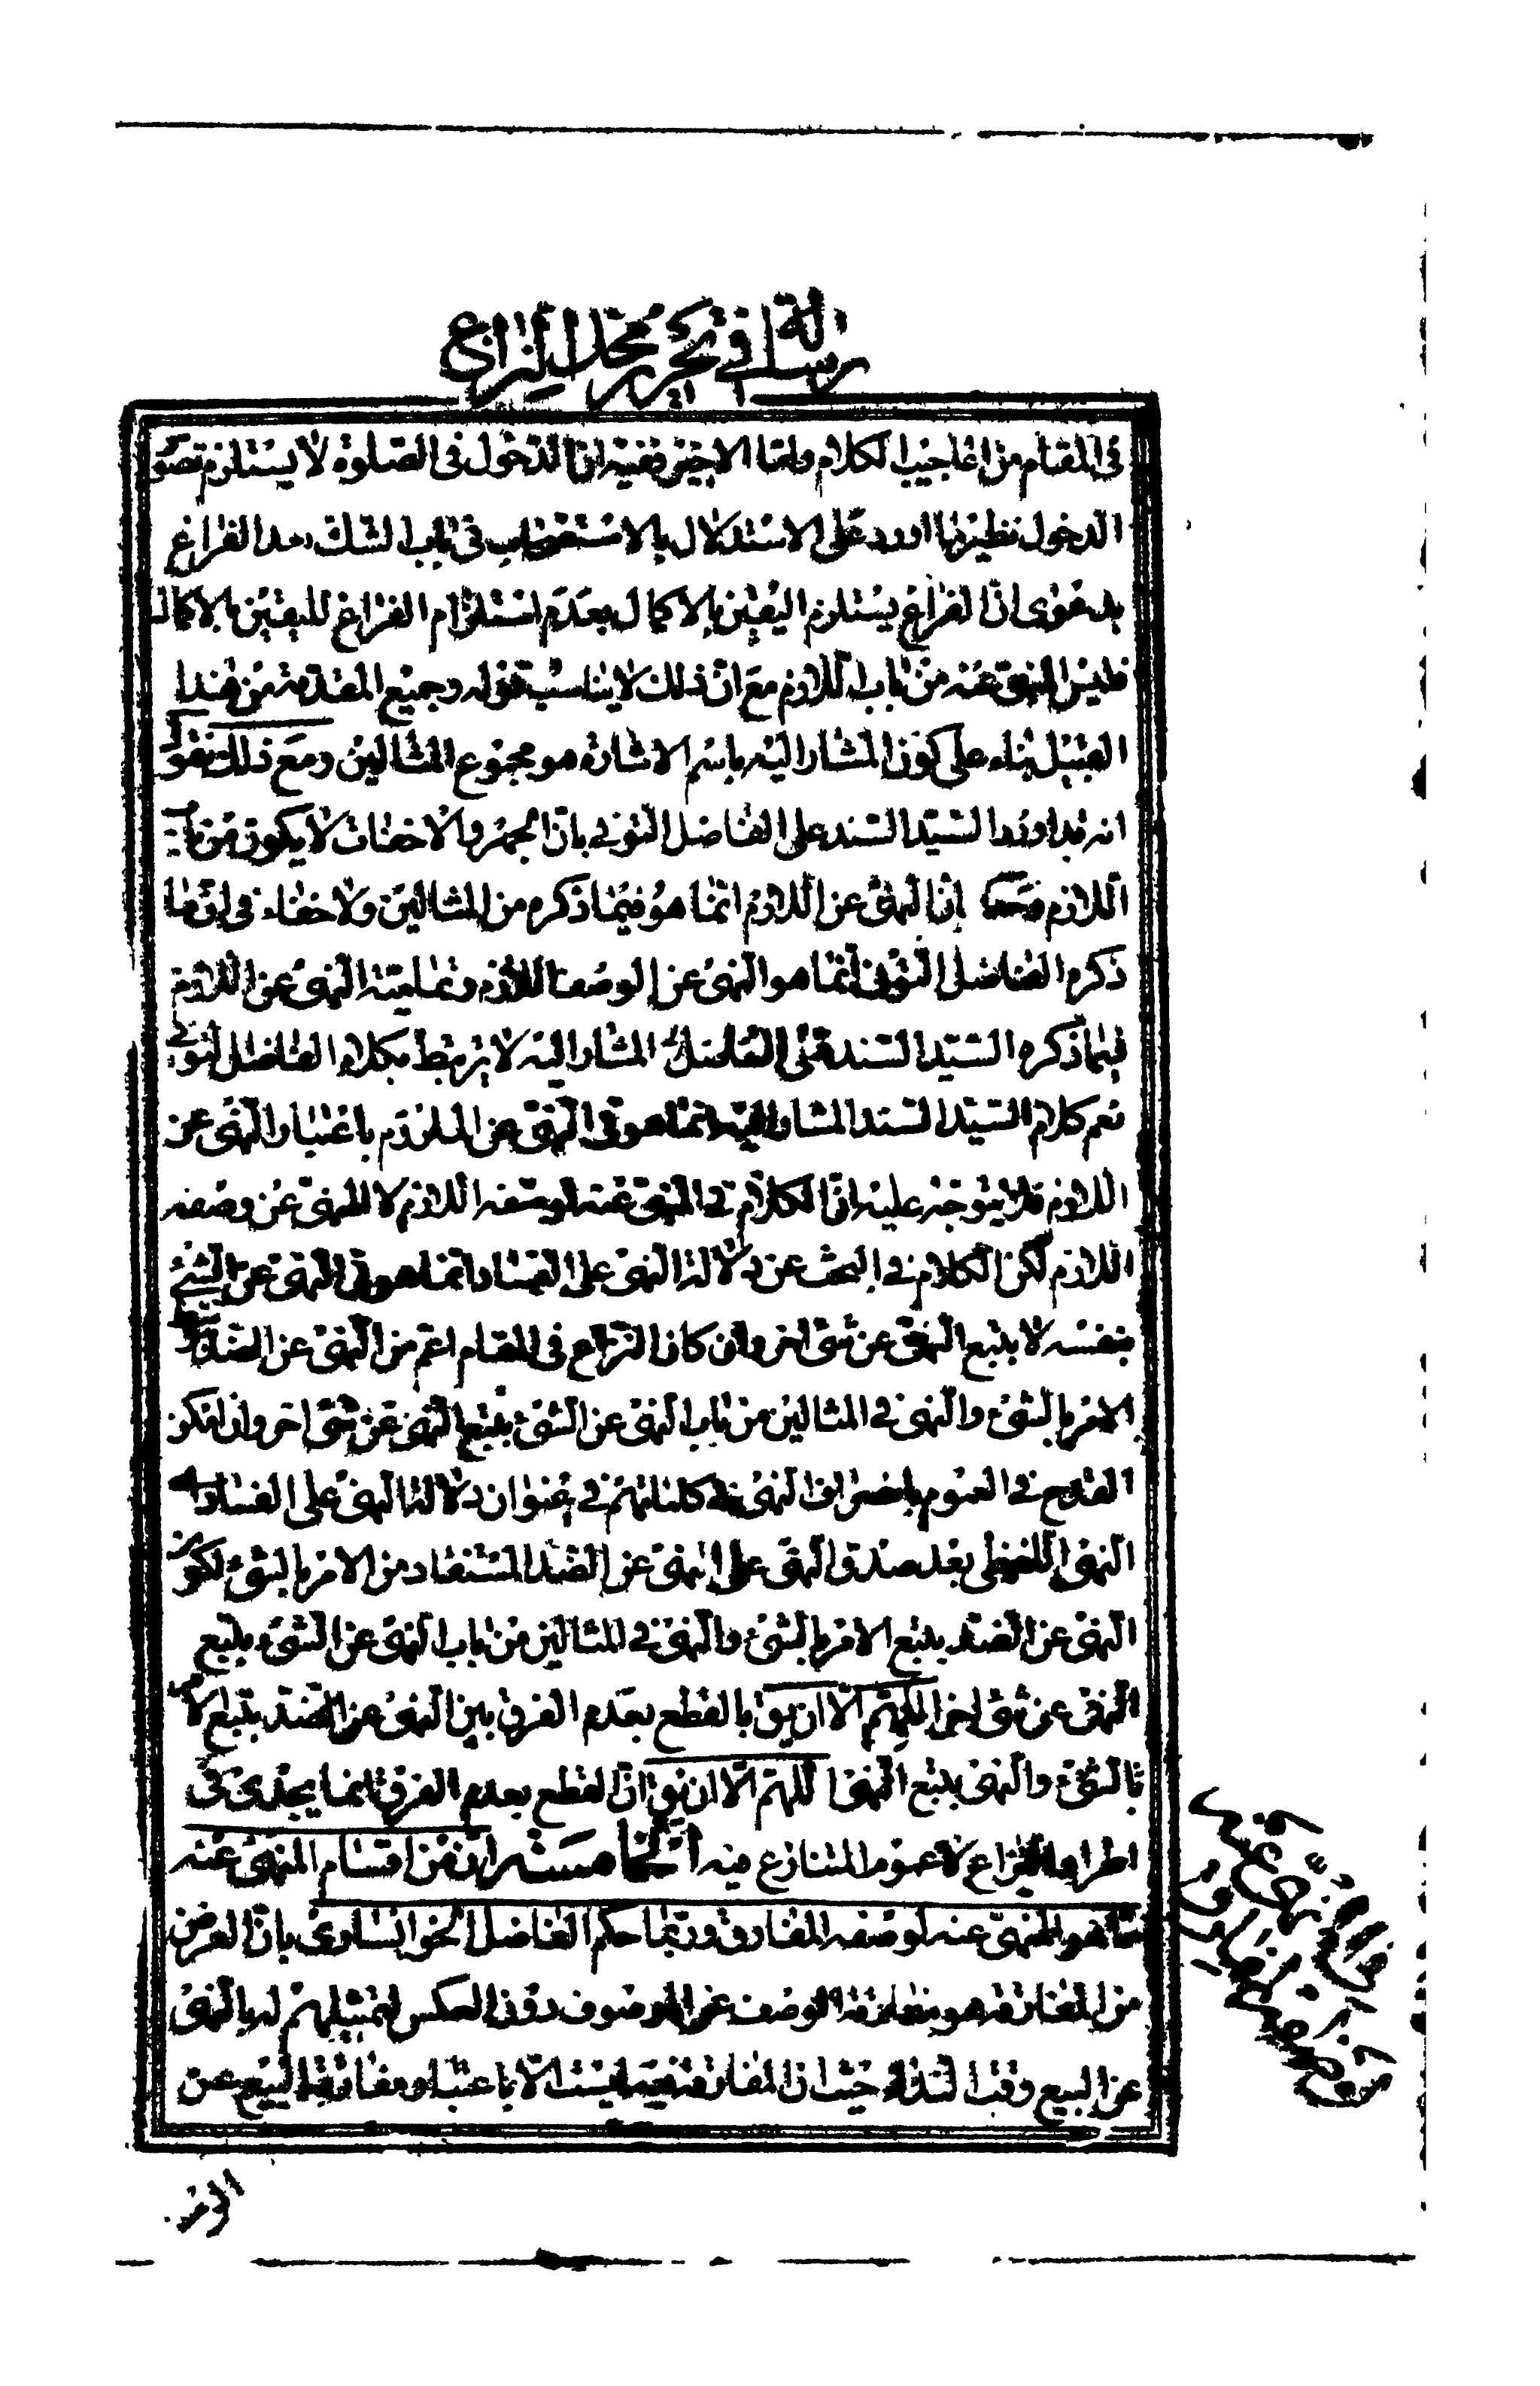 رسالة في تحرير محل النزاع
في المقام من اعاجيب الكلام واما الاخير ففيه ان الدخول في الصلوة لا يستلزم تصو
الدخول نظير ما اورد على الاستدلال بالاستصحاب في باب الشك بعد الفراغ
بدعوى ان الفراغ يستلزم اليقين بالاكمال بعدم استلزام الفراغ لليقين بالاكمال
فليس المنهى عنه من باب اللازم مع ان ذلك لا يناسب قوله وجميع المقدمة من هذا
القبيل بناء على كون المشار اليه باسم الاشارة هو مجموع المثالين ومع ذلك نقول
انه قد اورد السيد السند على الفاضل التونى بان الجهر والاخفات لا يكون من باب
اللازم فحسب ان النهى عن اللازم انما هو فيما ذكره من المثالين ولا خفاء في ان ما
ذكره الفاضل التونى انما هو النهى عن الوصف اللازم وتمامية النهى عن اللازم
فيما ذكره السيد السند على الفاضل المشار اليه لا يرتبط بكلام الفاضل التونى
نعم كلام السيد السند المشار اليه انما هو في النهى عن الملزوم باعتبار النهى عن
اللازم فلا يتوجه عليه ان الكلام في المنهى عنه لوصفه اللازم لا المنهى عن وصفه
اللازم لكن الكلام في البحث عن دلالة النهى على الفساد انما هو في النهى عن الشئ
بنفسه لا بتبع النهى عن شئ اخر وان كان النزاع في المقام اعم من النهى عن الضد
الامر بالشئ والنهى في المثالين من باب النهى عن الشئ بتبع النهى عن شئ اخر وان امكن
القدح في العموم بانصراف النهى في كلماتهم في عنوان دلالة النهى على الفساد
النهى اللفظى بعد صدق النهى على النهى عن الضد المستفاد من الامر بالشئ لكون
النهى عن الضد بتبع الامر بالشئ والنهى في المثالين من باب النهى عن الشئ بتبع
النهى عن شئ اخر اللهم الا ان يق بالقطع بعدم الفرق بين النهى عن الضد بتبع الامر
بالشئ والنهى بتبع النهى اللهم الا ان يق ان القطع بعدم الفرق انما يجدى في
اطراد النزاع لا عموم المتنازع فيه الخامسة ان من اقسام المنهى عنه
ما هو المنهى عنه لوصفه المفارق وربما حكم الفاضل الخوانسارى بان الغرض
من المفارقة هو مفارقة الوصف عن الموصوف دون العكس لتمثيلهم له بالنهى
عن البيع وقت النداء حيث ان المفارقة فيه ليست الا باعتبار مفارقة البيع عن